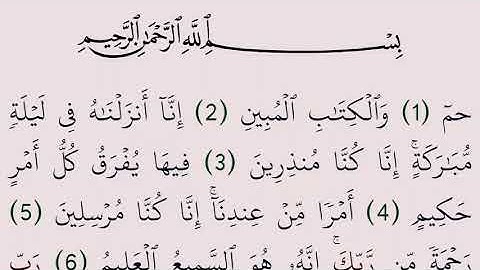 بِسْمِ ٱللَّهِ ٱلرَّحْمَٰنِ ٱلرَّحِيمِ
حمٓ (1) وَٱلْكِتَٰبِ ٱلْمُبِينِ (2) إِنَّآ أَنزَلْنَٰهُ فِى لَيْلَةٍ
مُّبَٰرَكَةٍ ۚ إِنَّا كُنَّا مُنذِرِينَ (3) فِيهَا يُفْرَقُ كُلُّ أَمْرٍ
حَكِيمٍ (4) أَمْرًا مِّنْ عِندِنَآ ۚ إِنَّا كُنَّا مُرْسِلِينَ (5)
رَحْمَةً مِّن رَّبِّكَ ۚ إِنَّهُۥ هُوَ ٱلسَّمِيعُ ٱلْعَلِيمُ (6) رَبِّ